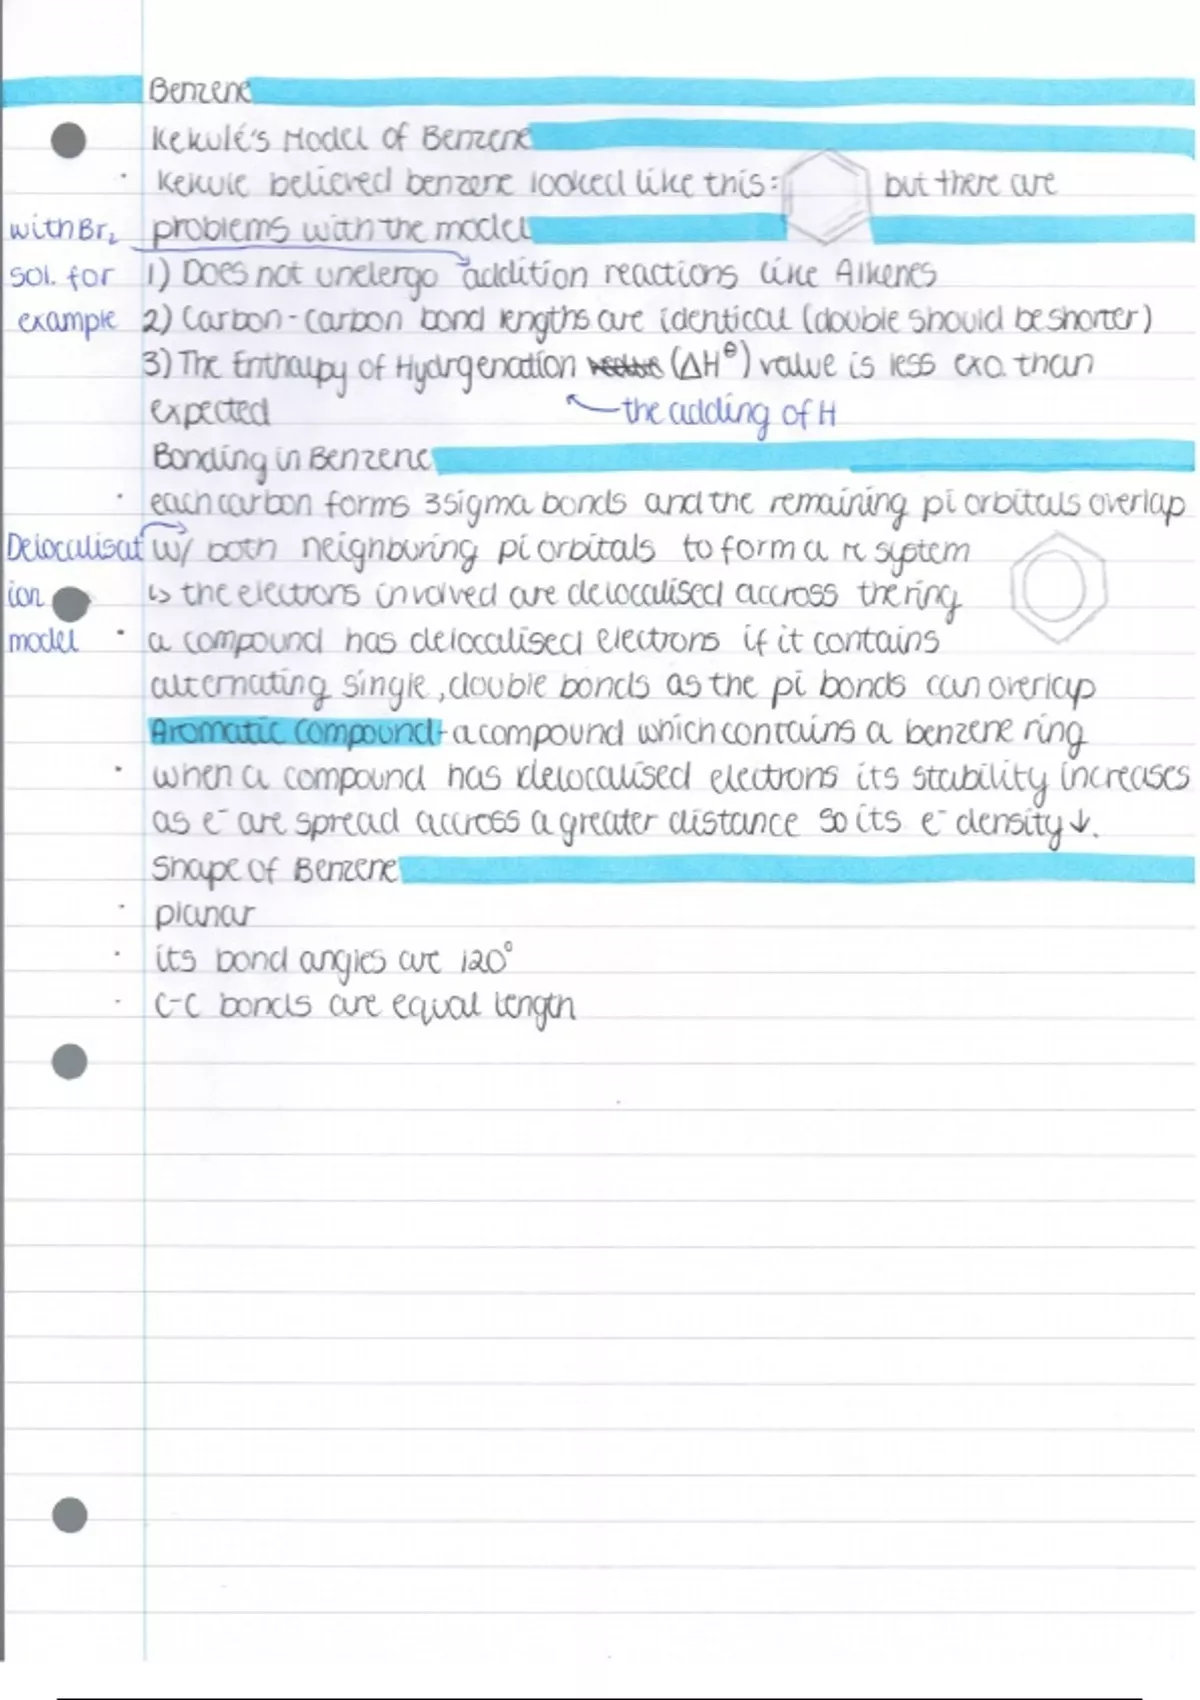 Benzene
Kekulé's Model of Benzene
Kekule believed benzene looked like this: but there are
with Br₂ problems with the model
sol. for 1) Does not undergo addition reactions like Alkenes
example 2) Carbon-carbon bond lengths are identical (double should be shorter)
3) The Enthalpy of Hydrgenation (ΔH^θ) value is less exo. than
expected the adding of H
Bonding in Benzene
each carbon forms 3 sigma bonds and the remaining pi orbitals overlap
Delocalisat w/ both neighburing pi orbitals to form a π system
ion ↳ the electrons involved are delocalised accross the ring
model a compound has delocalised electrons if it contains
alternating single, double bonds as the pi bonds can overlap
Aromatic Compound - a compound which contains a benzene ring
when a compound has delocalised electrons its stability increases
as e⁻ are spread accross a greater distance so its e⁻ density ↓.
Shape of Benzene
planar
its bond angles are 120°
C-C bonds are equal length